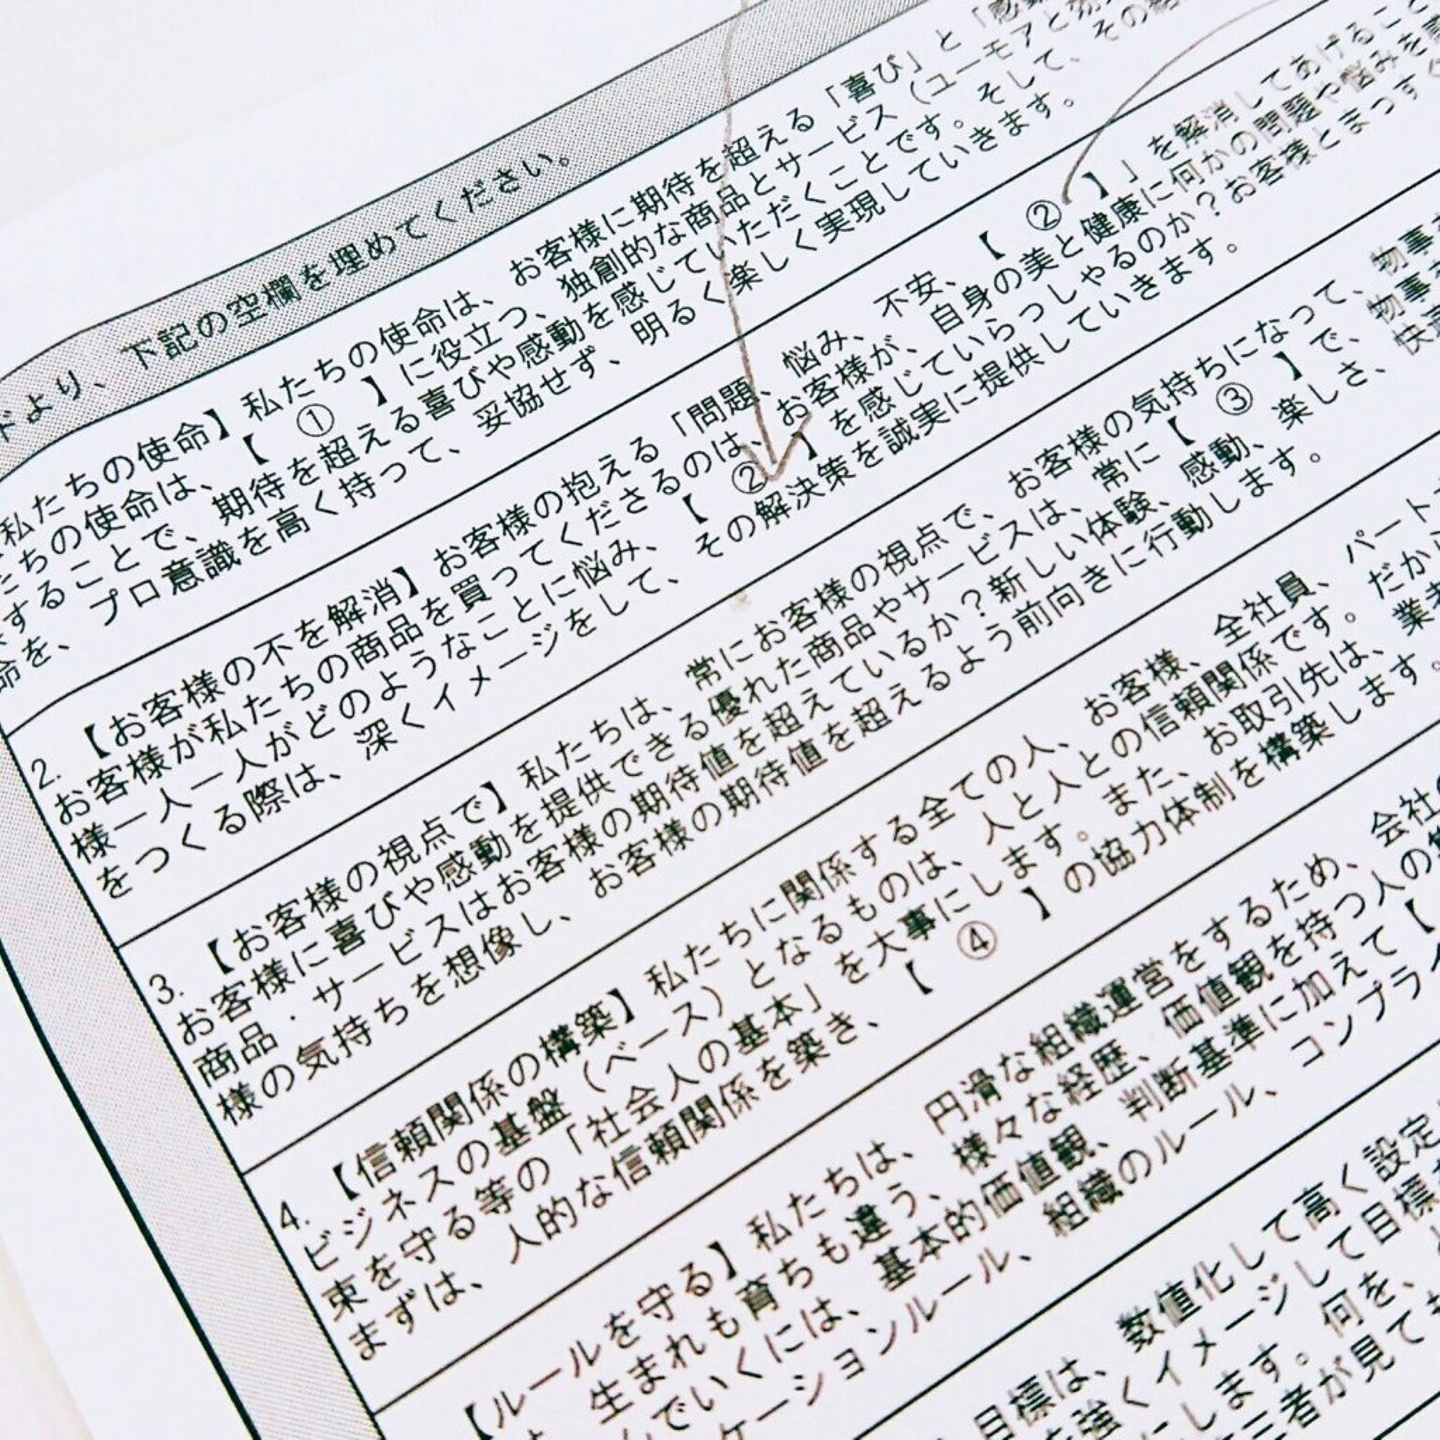 ドより、下記の空欄を埋めてください。
私たちの使命】私たちの使命は、お客様に期待を超える「喜び」と「感
たちの使命は、【　①　】に役立つ、独創的な商品とサービス（ユーモアと
することで、期待を超える喜びや感動を感じていただくことです。そして、その
命を、プロ意識を高く持って、妥協せず、明るく楽しく実現していきます。
2. 【お客様の不を解消】お客様の抱える「問題、悩み、不安、【　②　】」を解消してあげること
お客様が私たちの商品を買ってくださるのは、お客様が、自身の美と健康に何かの問題や悩みを
様一人一人がどのようなことに悩み、【　②　】を感じていらっしゃるのか？お客様とまっすぐ
をつくる際は、深くイメージをして、その解決策を誠実に提供していきます。
3. 【お客様の視点で】私たちは、常にお客様の視点で、お客様の気持ちになって、物事
お客様に喜びや感動を提供できる優れた商品やサービスは、常に【　③　】で、物事
商品・サービスはお客様の期待値を超えているか？新しい体験、感動、楽しさ、快適
様の気持ちを想像し、お客様の期待値を超えるよう前向きに行動します。
4. 【信頼関係の構築】私たちに関係する全ての人、お客様、全社員、パート
ビジネスの基盤（ベース）となるものは、人と人との信頼関係です。だから
束を守る等の「社会人の基本」を大事にします。また、お取引先は、業者
まずは、人的な信頼関係を築き、【　④　】の協力体制を構築します。
【ルールを守る】私たちは、円滑な組織運営をするため、会社の
生まれも育ちも違う、様々な経歴、価値観を持つ人の
でいくには、基本的価値観、判断基準に加えて【
ケーションルール、組織のルール、コンプライ
目標は、数値化して高く設定
を強くイメージして目標
にします。何を、
三者が見ても